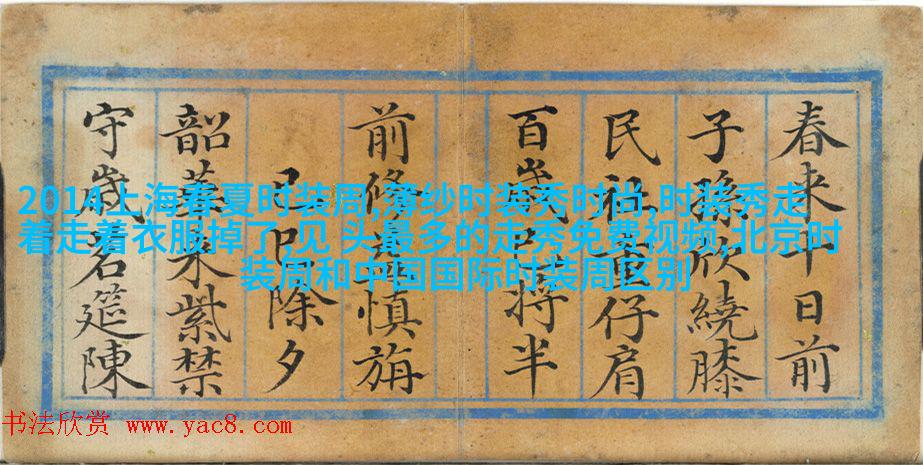 春来十日前
子孫欣繞膝
民社重仔肩
百歲將半
前修慎旃
己巳除夕
韶華来紫禁
守歲名筵陳
2014上海春夏时装周,薄纱时装秀时尚,时装秀走
着走着衣服掉了,见 头最多的走秀免费视频,北京时
装周和中国国际时装周区别
书法欣赏 www.yac8.com